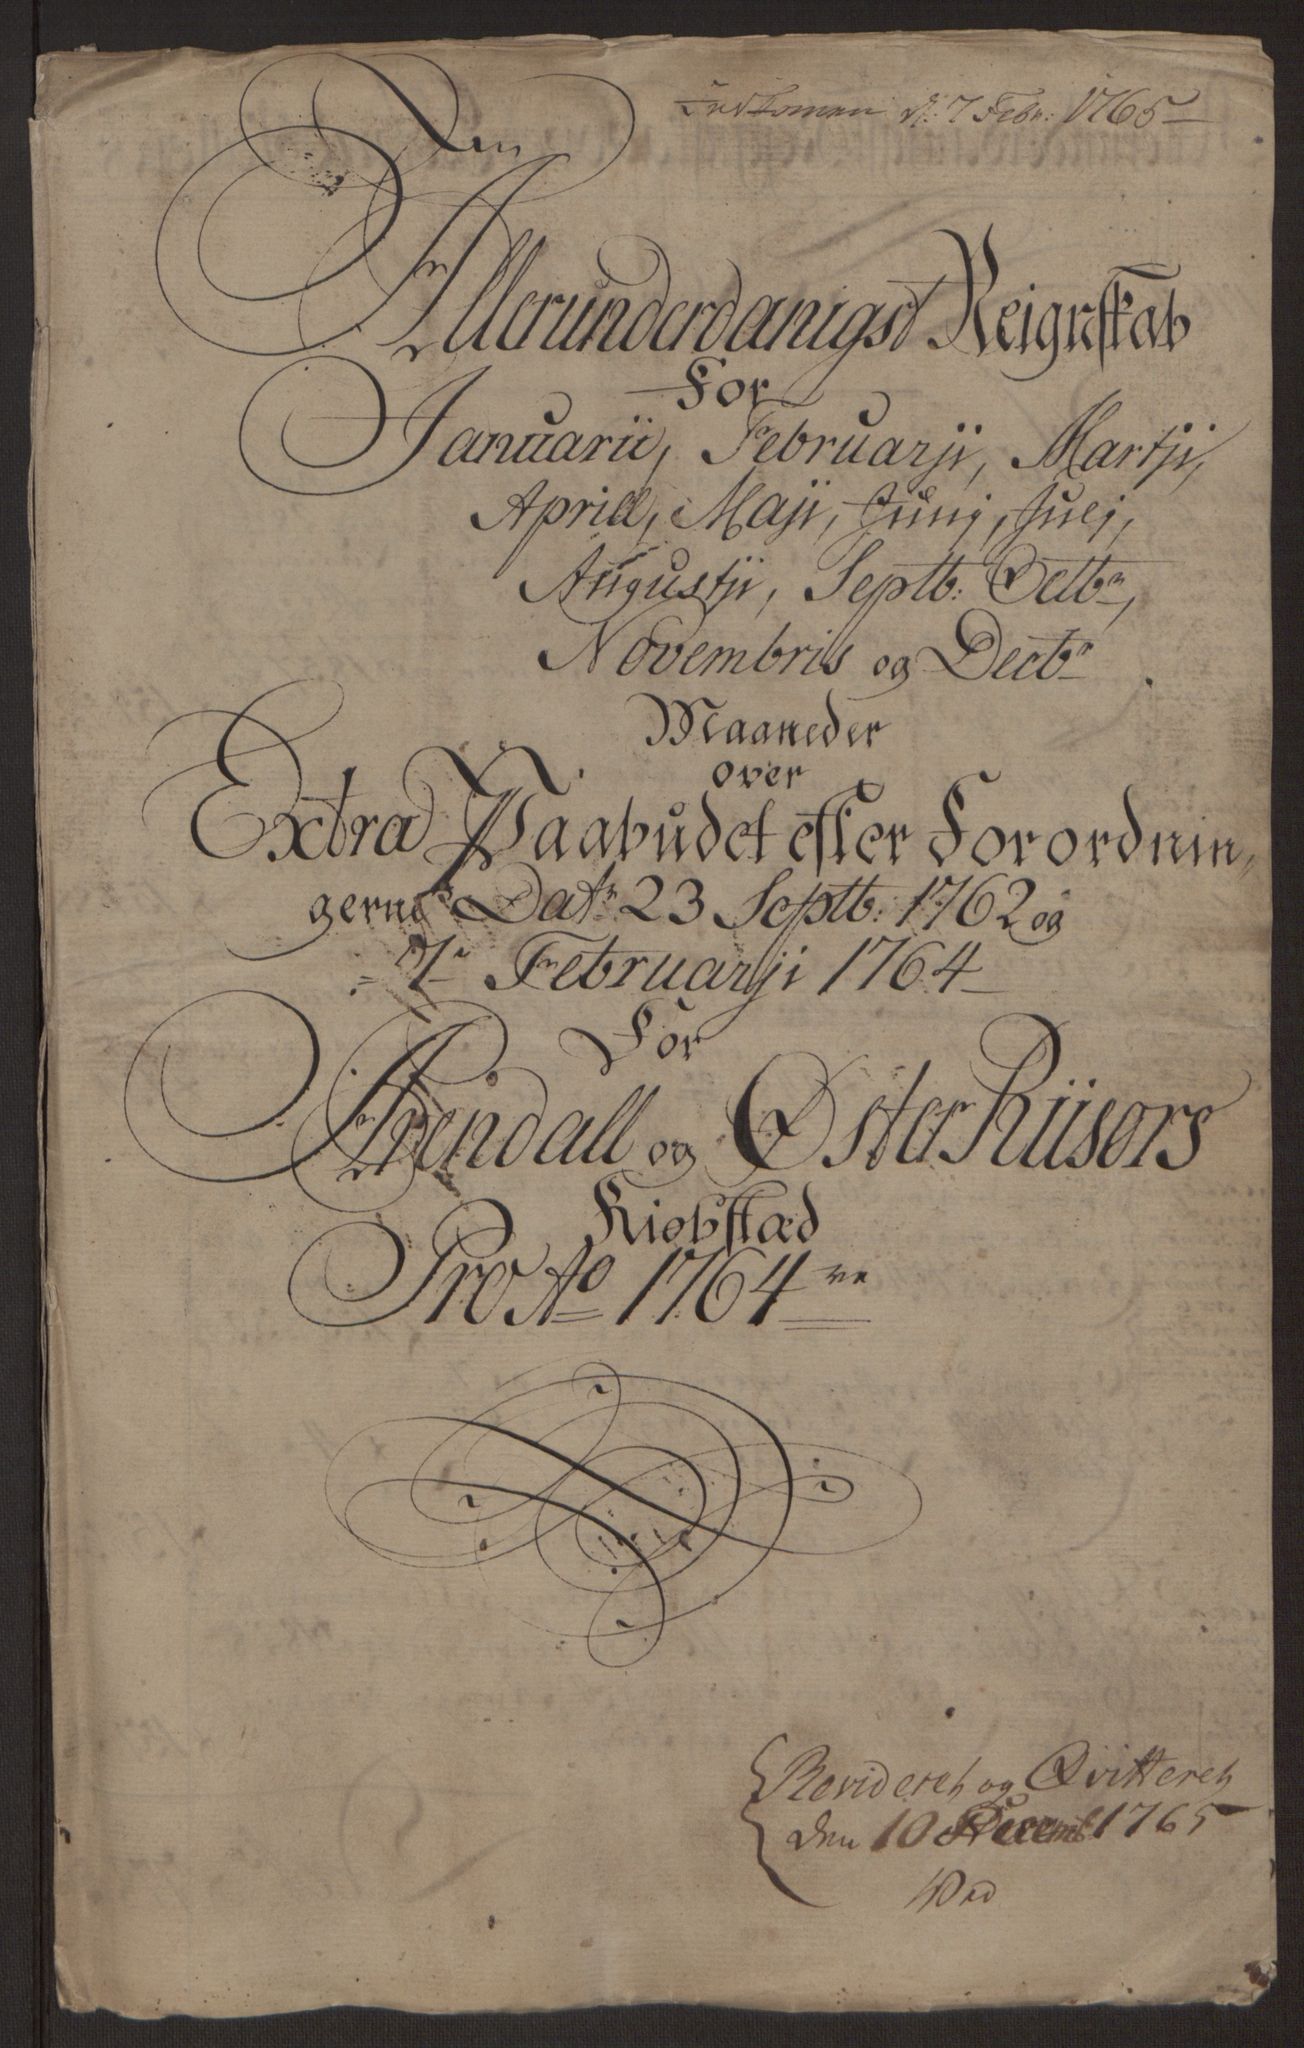 Indkomen d: 7 Febr: 1765
Een
Allerunderdanigst Reignskab
For
Januarii, Februarji, Martji,
Aprill, Maji, Junj, Julj,
Augustji, Septb: Octbr,
Novembris og Decbr
Maaneder
over
Extra Paabudet efter Forordnin„
gerne Datr 23 Septb: 1762 og
7de Februarji 1764
For
Arendall og ØsterRiisørs
Kiøbstæd
Pro Ao 1764
Revideret og Qvitteret
den 10 Decemb 1765